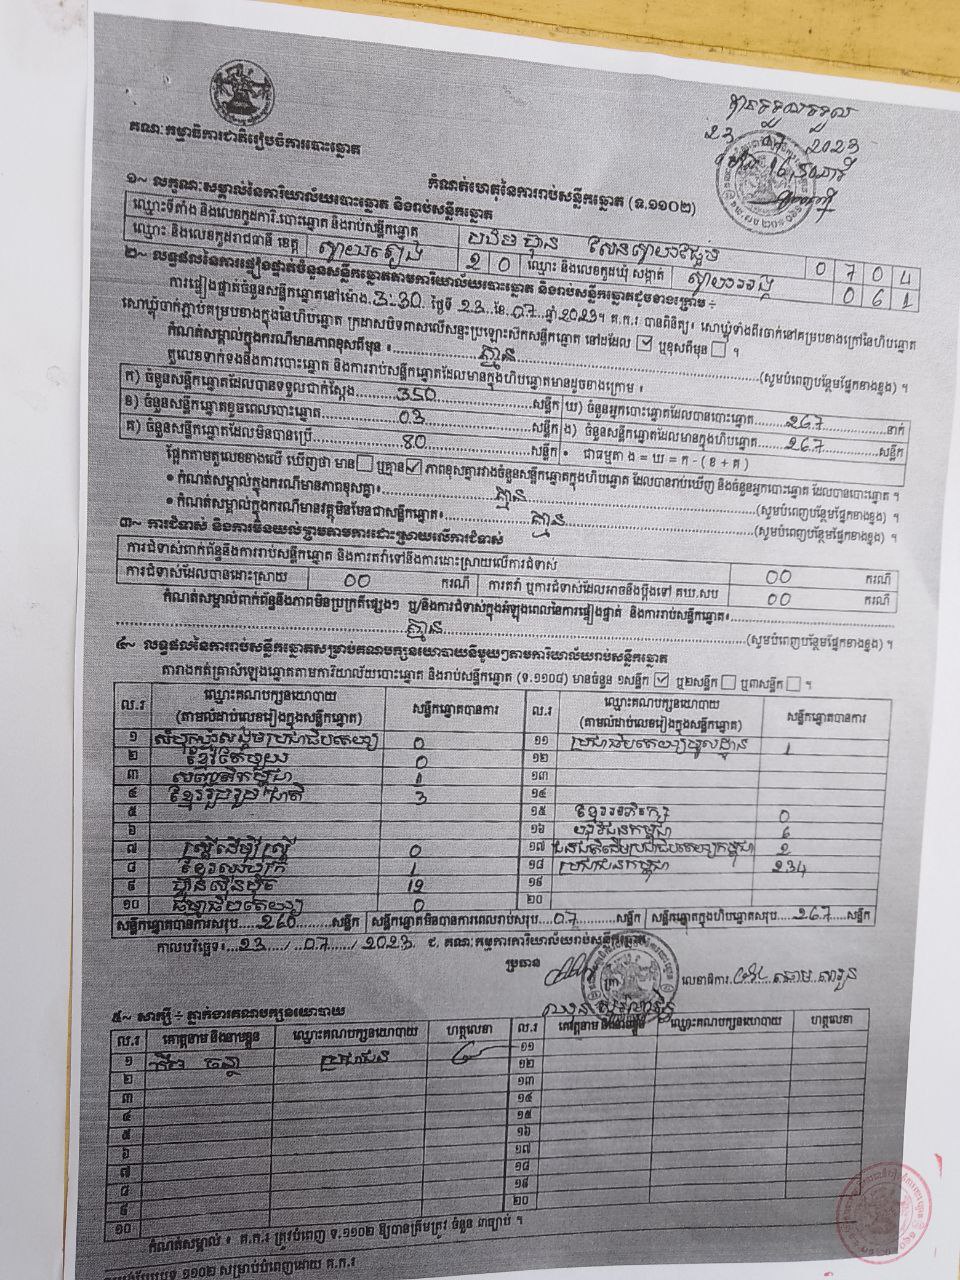 បានទទួលទទួល
23 07 2023
គណៈកម្មាធិការជាតិរៀបចំការបោះឆ្នោត
កំណត់ហេតុនៃការរាប់សន្លឹកឆ្នោត (ទ.១១០២)
១~ លក្ខណៈសម្គាល់នៃការិយាល័យបោះឆ្នោត និងរាប់សន្លឹកឆ្នោត
ឈ្មោះទីតាំង និងលេខកូដការិ.បោះឆ្នោត និងរាប់សន្លឹកឆ្នោត 0 7 0 4
ឈ្មោះ និងលេខកូដរាជធានី ខេត្ត ស្វាយរៀង 2 0 ឈ្មោះ និងលេខកូដឃុំ សង្កាត់ 0 6 1
២~ លទ្ធផលនៃការផ្ទៀងផ្ទាត់ចំនួនសន្លឹកឆ្នោតតាមការិយាល័យបោះឆ្នោត និងរាប់សន្លឹកឆ្នោតដូចខាងក្រោម ÷
ការផ្ទៀងផ្ទាត់ចំនួនសន្លឹកឆ្នោតនៅម៉ោង.3:30. ថ្ងៃទី .23..ខែ.07..ឆ្នាំ 2023។ គ.ក.រ បានពិនិត្យ៖ សោឃ្មុំទាំងពីរចាក់នៅគម្របខាងក្រៅនៃហិបឆ្នោត
សោឃ្មុំចាក់ភ្ជាប់គម្របខាងក្នុងនៃហិបឆ្នោត ក្រដាសបិទពាសលើសន្ទះប្រឡោះស៊កសន្លឹកឆ្នោត នៅដដែល ☑ ឬខុសពីមុន ☐ ។
កំណត់សម្គាល់ក្នុងករណីមានភាពខុសពីមុន ៖ គ្មាន (សូមបំពេញបន្ថែមផ្នែកខាងខ្នង) ។
តួលេខទាក់ទងនឹងការបោះឆ្នោត និងការរាប់សន្លឹកឆ្នោតដែលមានក្នុងហិបឆ្នោតមានដូចខាងក្រោម ៖
ក) ចំនួនសន្លឹកឆ្នោតដែលបានទទួលជាក់ស្តែង 350 សន្លឹក ឃ) ចំនួនអ្នកបោះឆ្នោតដែលបានបោះឆ្នោត 267 នាក់
ខ) ចំនួនសន្លឹកឆ្នោតខូចពេលបោះឆ្នោត 03 សន្លឹក ង) ចំនួនសន្លឹកឆ្នោតដែលមានក្នុងហិបឆ្នោត 267 សន្លឹក
គ) ចំនួនសន្លឹកឆ្នោតដែលមិនបានប្រើ 80 សន្លឹក • ជាធម្មតា ង = ឃ = ក - ( ខ + គ )
ផ្អែកតាមតួលេខខាងលើ ឃើញថា មាន ☐ ឬគ្មាន ☑ ភាពខុសគ្នារវាងចំនួនសន្លឹកឆ្នោតក្នុងហិបឆ្នោត ដែលបានរាប់ឃើញ និងចំនួនអ្នកបោះឆ្នោត ដែលបានបោះឆ្នោត ។
• កំណត់សម្គាល់ក្នុងករណីមានភាពខុសគ្នា៖ គ្មាន (សូមបំពេញបន្ថែមផ្នែកខាងខ្នង) ។
• កំណត់សម្គាល់ក្នុងករណីមានវត្ថុមិនមែនជាសន្លឹកឆ្នោត៖ គ្មាន (សូមបំពេញបន្ថែមផ្នែកខាងខ្នង) ។
៣~ ការជំទាស់ និងការមិនយល់ព្រមតាមការដោះស្រាយលើការជំទាស់
ការជំទាស់ពាក់ព័ន្ធនឹងការរាប់សន្លឹកឆ្នោត និងការតវ៉ាទៅនឹងការដោះស្រាយលើការជំទាស់ 00 ករណី
ការជំទាស់ដែលបានដោះស្រាយ 00 ករណី ការតវ៉ា ឬការជំទាស់ដែលអាចនឹងប្តឹងទៅ គឃ.សប 00 ករណី
កំណត់សម្គាល់ពាក់ព័ន្ធនឹងភាពមិនប្រក្រតីផ្សេងៗ ឬ/និងការជំទាស់ក្នុងអំឡុងពេលនៃការផ្ទៀងផ្ទាត់ និងការរាប់សន្លឹកឆ្នោត៖
គ្មាន (សូមបំពេញបន្ថែមផ្នែកខាងខ្នង) ។
៤~ លទ្ធផលនៃការរាប់សន្លឹកឆ្នោតសម្រាប់គណបក្សនយោបាយនីមួយៗតាមការិយាល័យរាប់សន្លឹកឆ្នោត
តារាងកត់ត្រាសំឡេងឆ្នោតតាមការិយាល័យបោះឆ្នោត និងរាប់សន្លឹកឆ្នោត (ទ.១១០៨) មានចំនួន ១សន្លឹក ☑ ឬ២សន្លឹក ☐ ឬ៣សន្លឹក ☐ ។
ល.រ ឈ្មោះគណបក្សនយោបាយ (តាមលំដាប់លេខរៀងក្នុងសន្លឹកឆ្នោត) សន្លឹកឆ្នោតបានការ ល.រ ឈ្មោះគណបក្សនយោបាយ (តាមលំដាប់លេខរៀងក្នុងសន្លឹកឆ្នោត) សន្លឹកឆ្នោតបានការ
១ សំបុកឃ្មុំសង្គមប្រជាធិបតេយ្យ 0 ១១ ប្រជាធិបតេយ្យមូលដ្ឋាន 1
២ ខ្មែរតែមួយ 0 ១២
៣ សញ្ជាតិកម្ពុជា 1 ១៣
៤ ខ្មែររួបរួមជាតិ 3 ១៤
៥ ១៥ ខ្មែរអភិរក្ស 0
៦ ១៦ យុវជនកម្ពុជា 6
៧ ស្ត្រីដើម្បីស្ត្រី 0 ១៧ ជនជាតិដើមប្រជាធិបតេយ្យកម្ពុជា 2
៨ ខ្មែរឈប់ក្រ 1 ១៨ ប្រជាជនកម្ពុជា 234
៩ ហ្វ៊ុនស៊ិនប៉ិច 12 ១៩
១០ ធម្មាធិបតេយ្យ 0 ២០
សន្លឹកឆ្នោតបានការសរុប 260 សន្លឹក សន្លឹកឆ្នោតមិនបានការពេលរាប់សរុប 07 សន្លឹក សន្លឹកឆ្នោតក្នុងហិបឆ្នោតសរុប 267 សន្លឹក
កាលបរិច្ឆេទ៖ 23 / 07 / 2023 ជ. គណៈកម្មការការិយាល័យរាប់សន្លឹកឆ្នោត
ប្រធាន លេខាធិការ
៥~ សាក្សី ÷ ភ្នាក់ងារគណបក្សនយោបាយ
ល.រ គោត្តនាម និងនាមខ្លួន ឈ្មោះគណបក្សនយោបាយ ហត្ថលេខា ល.រ គោត្តនាម និងនាមខ្លួន ឈ្មោះគណបក្សនយោបាយ ហត្ថលេខា
១ ប្រជាជន ១១
២ ១២
៣ ១៣
៤ ១៤
៥ ១៥
៦ ១៦
៧ ១៧
៨ ១៨
៩ ១៩
១០ ២០
កំណត់សម្គាល់ ៖ គ.ក.រ ត្រូវបំពេញ ទ.១១០២ ឱ្យបានត្រឹមត្រូវ ចំនួន ៣ច្បាប់ ។
ទ.១១០២ សម្រាប់បំពេញដោយ គ.ក.រ